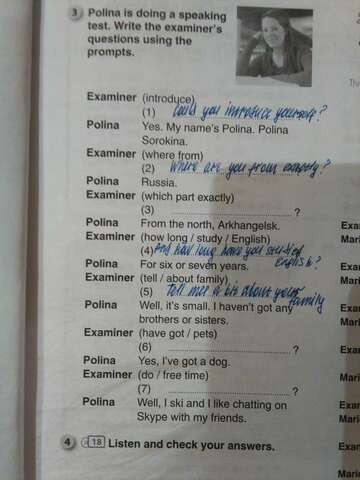 3 Polina is doing a speaking
test. Write the examiner's
questions using the
prompts.
Examiner (introduce)
(1) Could you introduce yourself?
Polina Yes. My name's Polina. Polina
Sorokina.
Examiner (where from)
(2) Where are you from exactly?
Polina Russia.
Examiner (which part exactly)
(3) ?
Polina From the north, Arkhangelsk.
Examiner (how long / study / English)
(4) And how long have you studied
English?
Polina For six or seven years.
Examiner (tell / about family)
(5) Tell me a bit about your
family
Polina Well, it's small. I haven't got any
brothers or sisters.
Examiner (have got / pets)
(6) ?
Polina Yes, I've got a dog.
Examiner (do / free time)
(7) ?
Polina Well, I ski and I like chatting on
Skype with my friends.
4 18 Listen and check your answers.